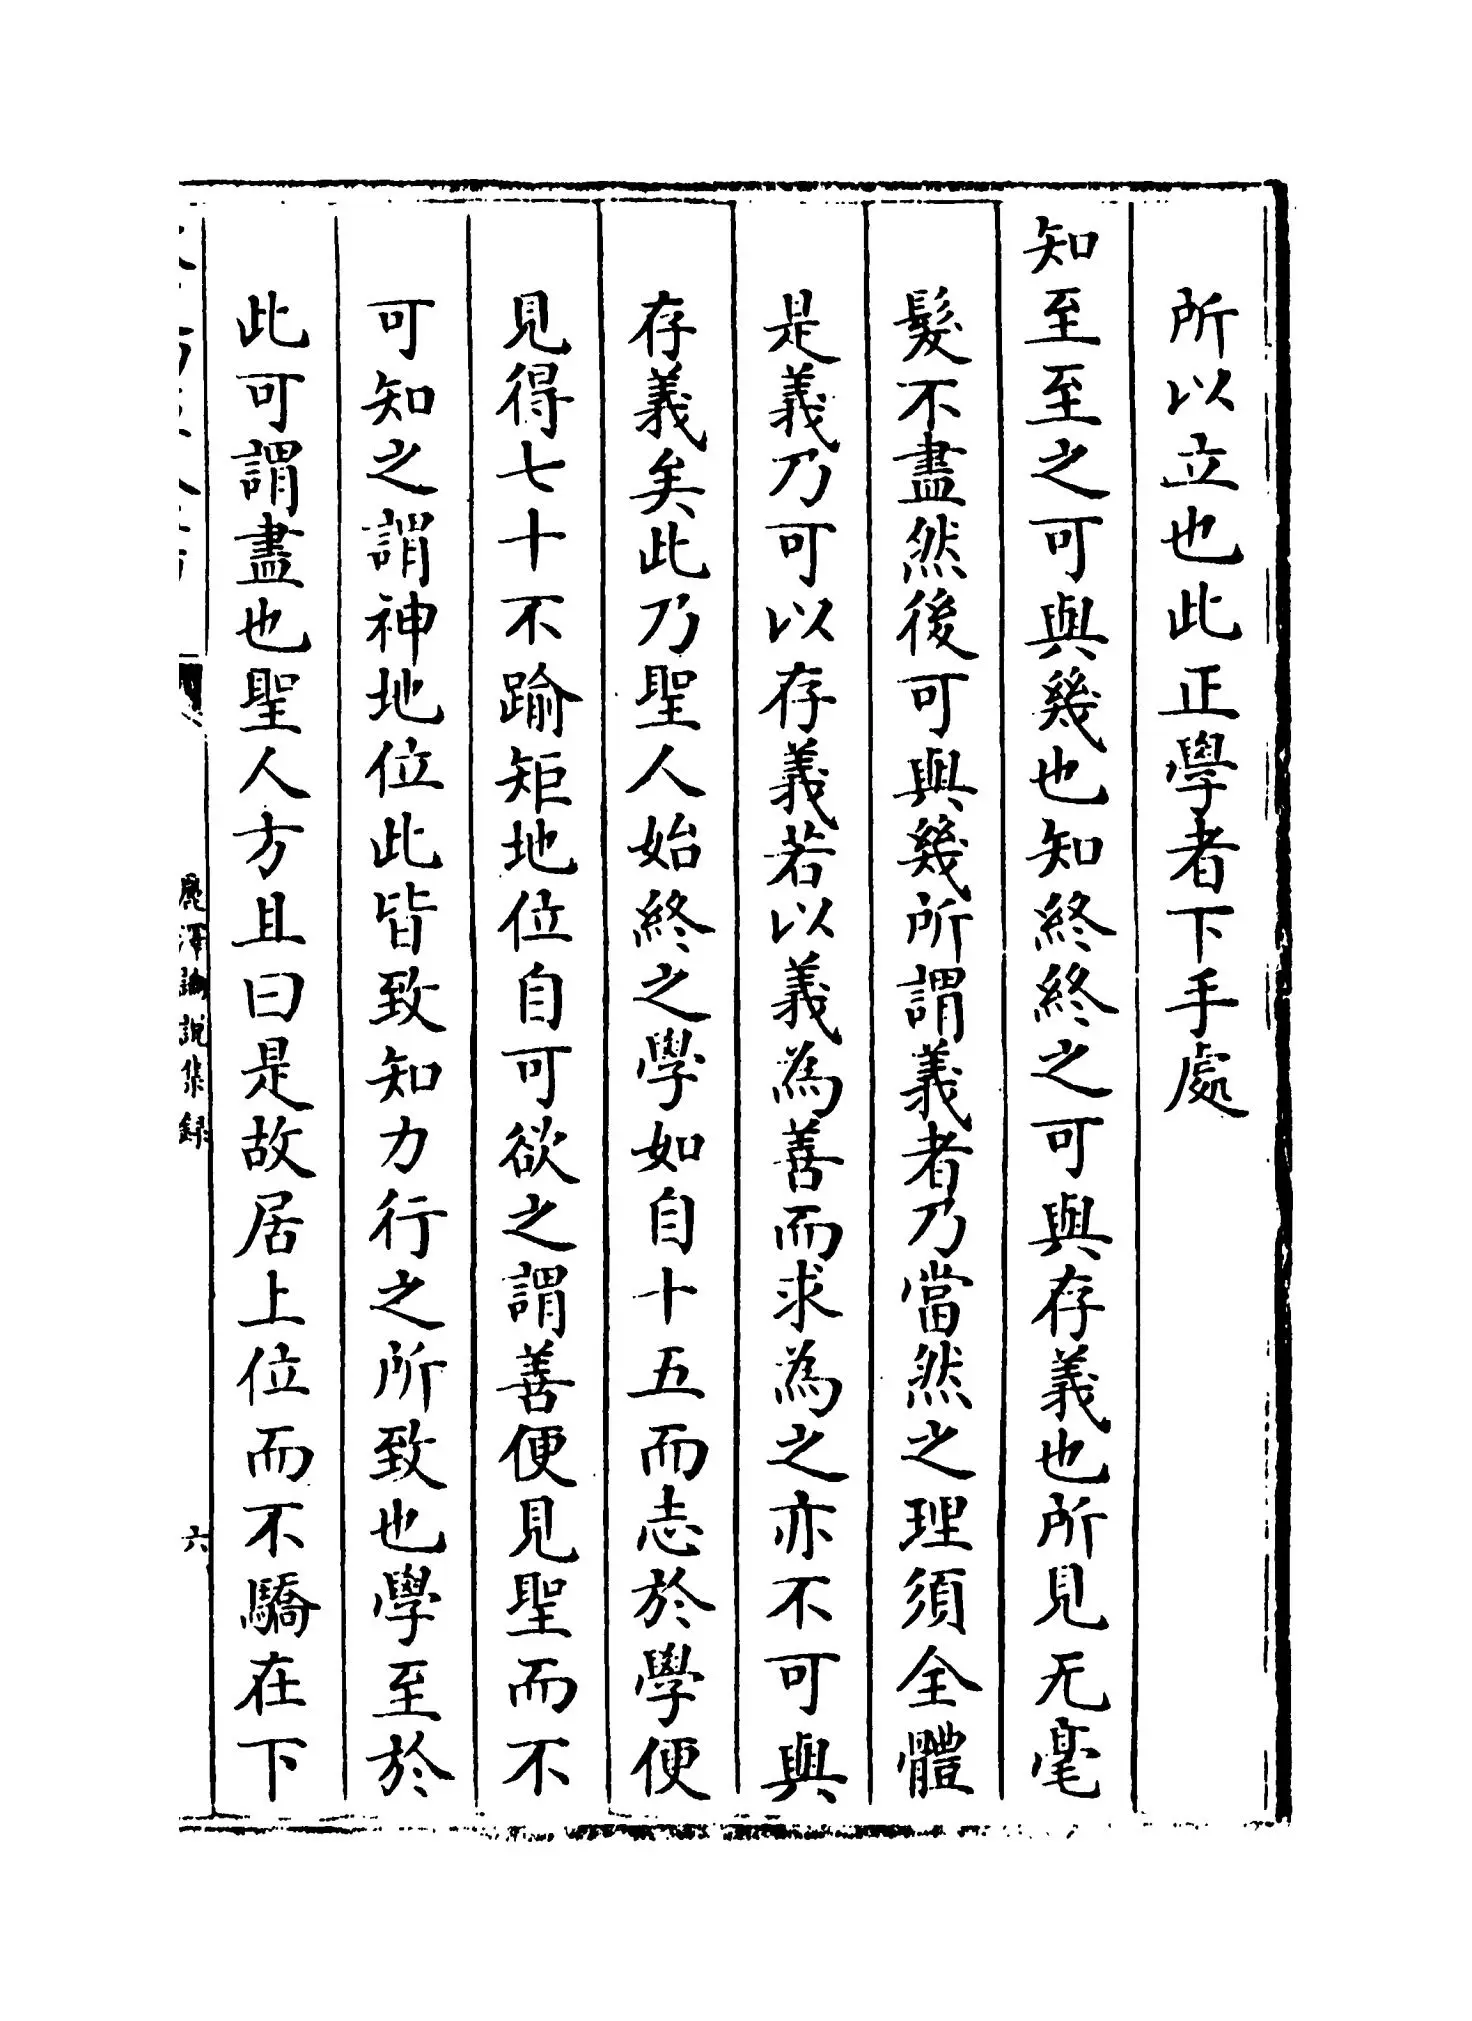 所以立也此正學者下手處
知至至之可與幾也知終終之可與存義也所見无毫
髮不盡然後可與幾所謂義者乃當然之理須全體
是義乃可以存義若以義為善而求為之亦不可與
存義矣此乃聖人始終之學如自十五而志於學便
見得七十不踰矩地位自可欲之謂善便見聖而不
可知之謂神地位此皆致知力行之所致也學至於
此可謂盡也聖人方且曰是故居上位而不驕在下
麗澤論說集録
六